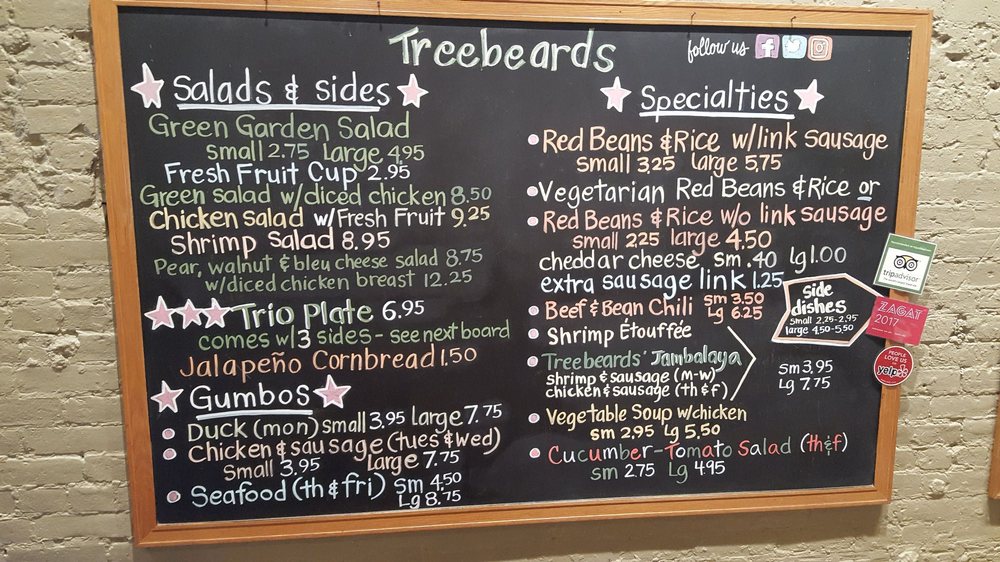 Treebeards
follow us
Salads & sides
Green Garden Salad
small 2.75 Large 4.95
Fresh Fruit Cup 2.95
Green salad w/diced chicken 8.50
Chicken salad w/Fresh Fruit 9.25
Shrimp Salad 8.95
Pear, walnut & bleu cheese salad 8.75
w/diced chicken breast 12.25
Trio Plate 6.95
comes w/3 sides - see next board
Jalapeño Cornbread 1.50
Gumbos
• Duck (mon) small 3.95 large 7.75
• Chicken & sausage (tues & wed)
small 3.95 large 7.75
• Seafood (th & fri) Sm 4.50
Lg 8.75
Specialties
• Red Beans & Rice w/link sausage
small 3.25 large 5.75
• Vegetarian Red Beans & Rice or
• Red Beans & Rice w/o link sausage
small 2.25 large 4.50
cheddar cheese Sm .40 Lg 1.00
extra sausage link 1.25
• Beef & Bean Chili Sm 3.50
Lg 6.25
• Shrimp Étouffée
• Treebeards' Jambalaya
shrimp & sausage (m-w)
chicken & sausage (th & f)
Sm 3.95
Lg 7.75
• Vegetable Soup w/chicken
sm 2.95 Lg 5.50
• Cucumber-Tomato Salad (th & f)
sm 2.75 Lg 4.95
side
dishes
small 2.25-2.95
large 4.50-5.50
tripadvisor
ZAGAT
2017
PEOPLE
LOVE US
yelp